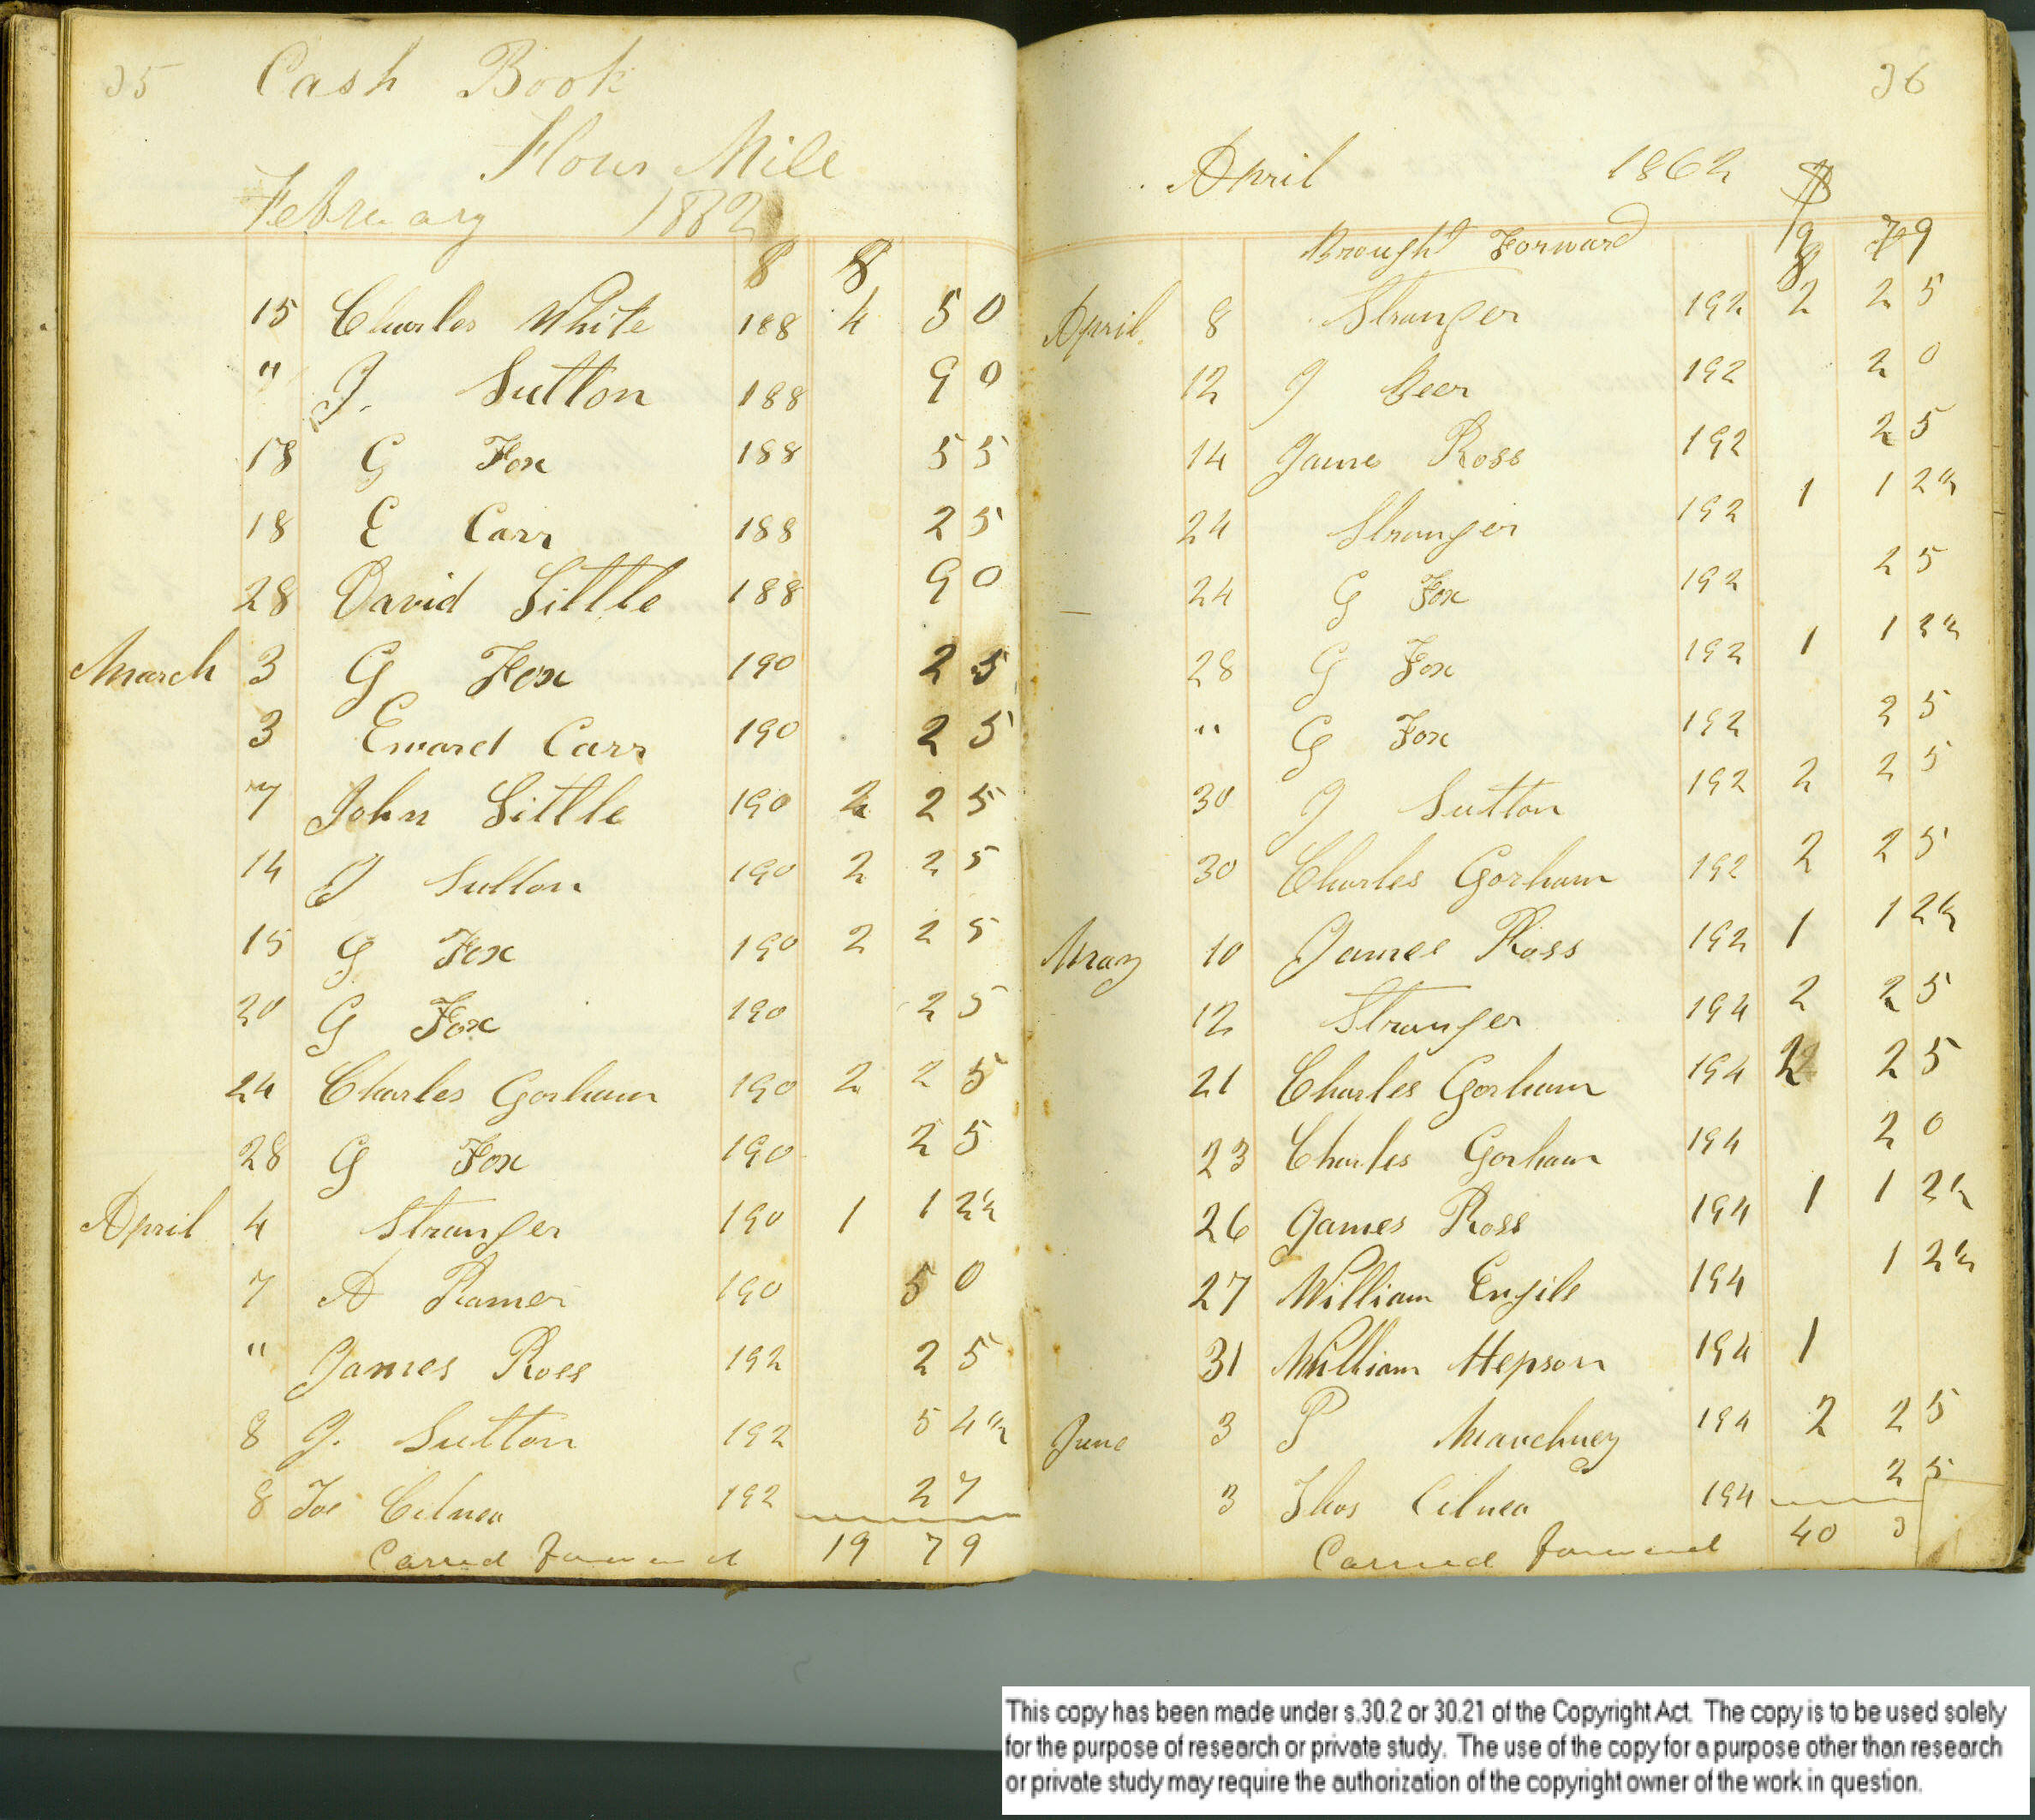 35 Cash Book
Flour Mill
February 1882
$ $
15 Charles White 188 4 50
" J. Sutton 188 90
18 G Fox 188 55
18 E Carr 188 25
28 David Little 188 90
March 3 G Fox 190 25
3 Eward Carr 190 25
7 John Little 190 2 25
14 J Sutton 190 2 25
15 G Fox 190 2 25
20 G Fox 190 25
24 Charles Gorham 190 2 25
28 G Fox 190 25
April 4 Stranger 190 1 12½
7 A Ramer 190 50
" James Ross 192 25
8 J. Sutton 192 54½
8 Joe 192 27
Carried forward 19 79
36
April 1862 $
Brought Forward 19 79
April 8 Stranger 192 2 25
12 J Beer 192 20
14 James Ross 192 25
24 Stranger 192 1 12½
24 G Fox 192 25
28 G Fox 192 1 12½
" G Fox 192 25
30 J Sutton 192 2 25
30 Charles Gorham 192 2 25
May 10 James Ross 192 1 12½
12 Stranger 194 2 25
21 Charles Gorham 194 2 25
23 Charles Gorham 194 20
26 James Ross 194 1 12½
27 William 194 12½
31 William Hepson 194 1
June 3 P 194 2 25
3 Thos 194 25
Carried forward 40 3
This copy has been made under s.30.2 or 30.21 of the Copyright Act. The copy is to be used solely
for the purpose of research or private study. The use of the copy for a purpose other than research
or private study may require the authorization of the copyright owner of the work in question.